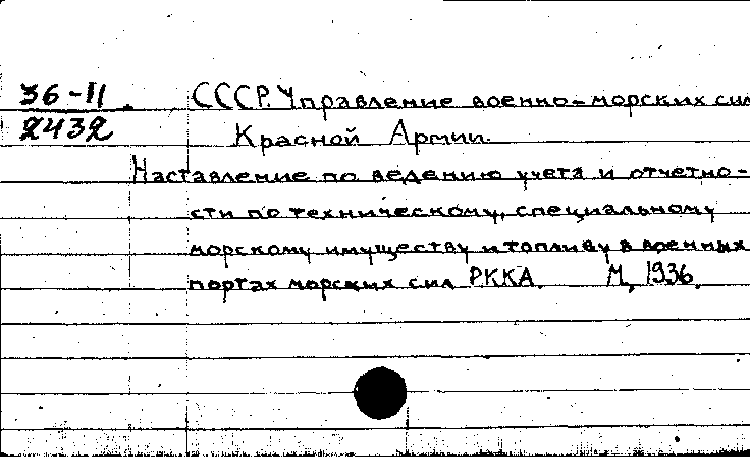 36-11 СССР. Управление военно-морских сил
2432 Красной Армии.
Наставление по ведению учета и отчетно-
сти по техническому, специальному
морскому имуществу и топливу в военных
портах морских сил РККА. М, 1936.